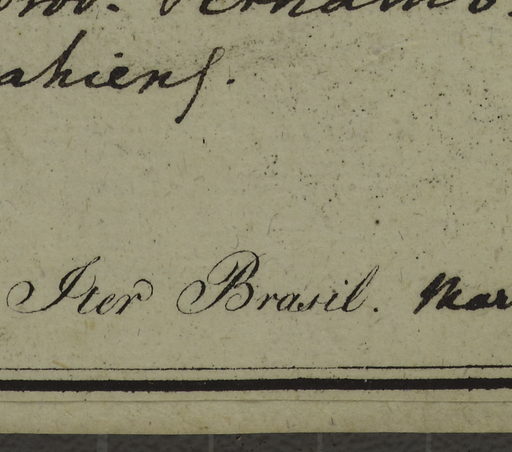 prov. Pernamb.
ahiens.
Iter Brasil. Mar